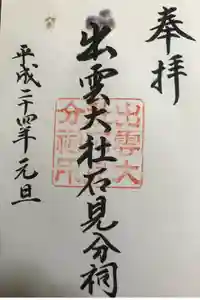 奉拝
出雲大社石見分祠
平成二十四年元旦
出雲大
分祠印